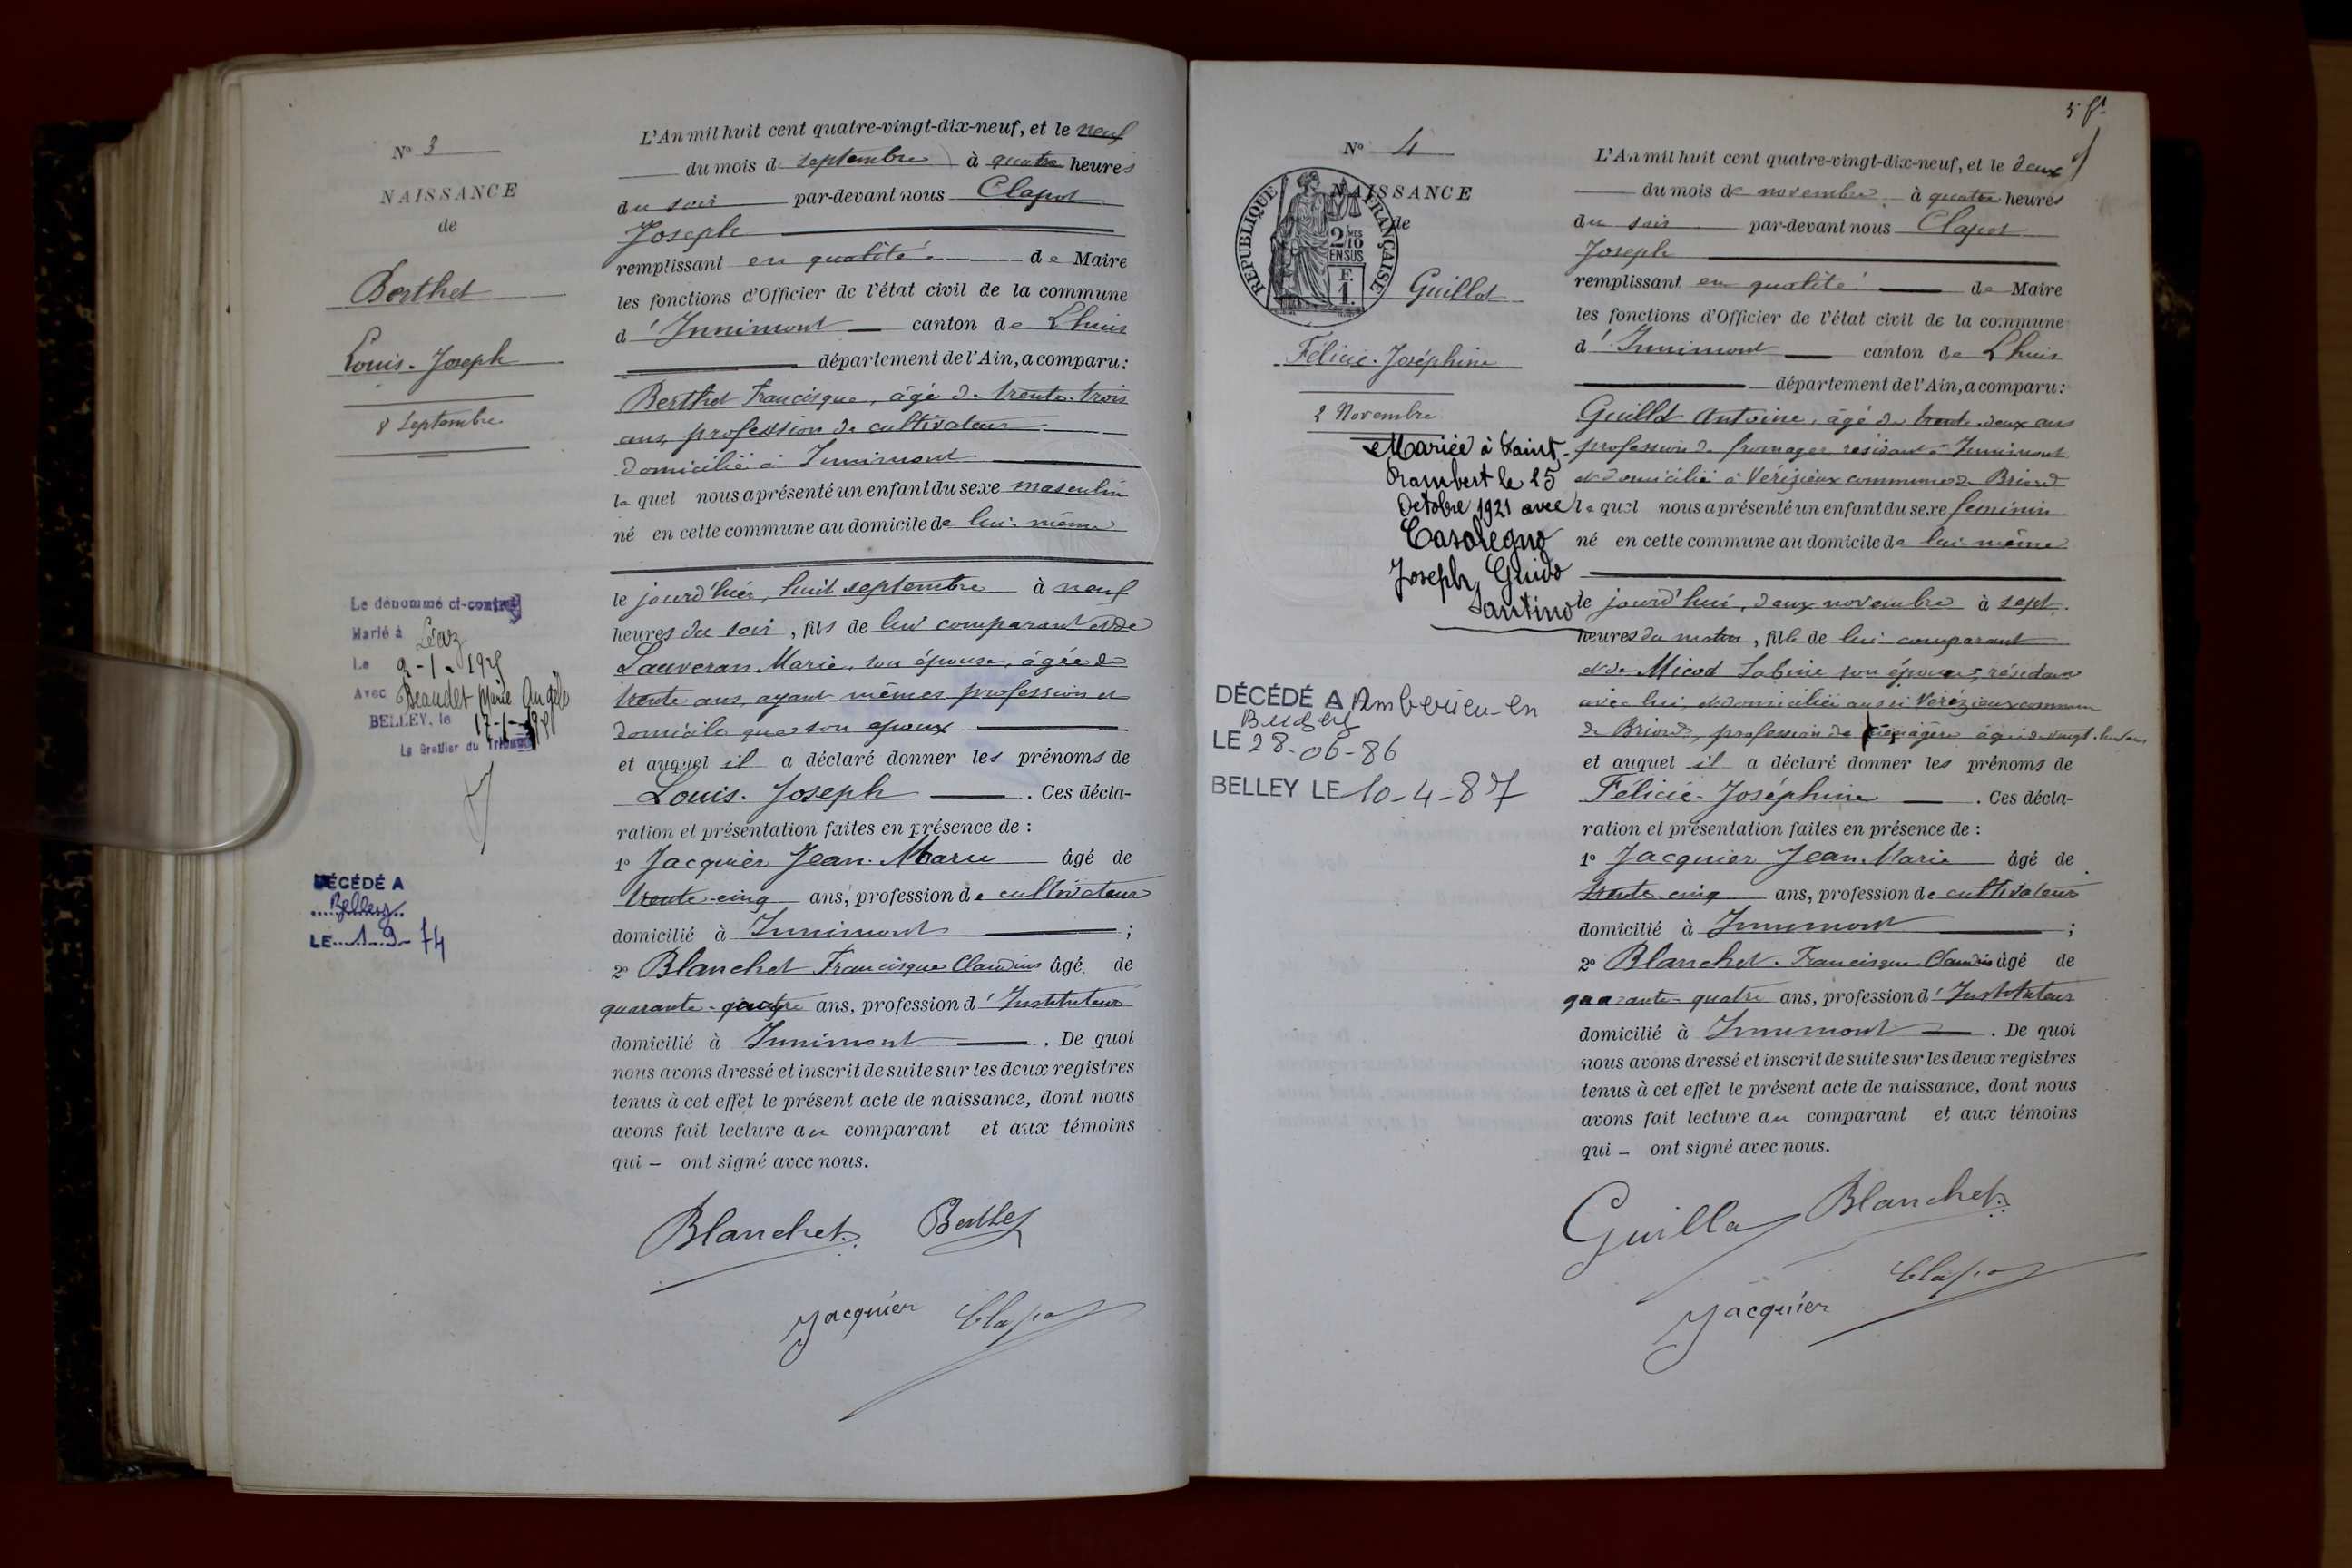 N° 3
NAISSANCE
de
Berthet
Louis-Joseph
8 Septembre
Le dénommé ci-contre
Marié à Léaz
Le 9-1-1925
Avec Beaudet Marie Angèle
BELLEY, le 17-1-1925
Le Greffier du Tribunal
DÉCÉDÉ A
Belley
LE 1-9-74
L'An mil huit cent quatre-vingt-dix-neuf, et le neuf
du mois de septembre à quatre heures
du soir par-devant nous Clapot
Joseph
remplissant en qualité de Maire
les fonctions d'Officier de l'état civil de la commune
d'Innimont canton de Lhuis
département de l'Ain, a comparu:
Berthet Francisque, âgé de trente-trois
ans, profession de cultivateur
domicilié à Innimont
le quel nous a présenté un enfant du sexe masculin
né en cette commune au domicile de lui-même
le jourd'hier, huit septembre à neuf
heures du soir, fils de lui comparant et de
Lauveran Marie, son épouse, âgée de
trente ans, ayant mêmes profession et
domicile que son époux
et auquel il a déclaré donner les prénoms de
Louis-Joseph. Ces décla-
ration et présentation faites en présence de :
1° Jacquier Jean-Marie âgé de
trente-cinq ans, profession de cultivateur
domicilié à Innimont ;
2° Blanchet Francisque Claudius âgé de
quarante-quatre ans, profession d'Instituteur
domicilié à Innimont. De quoi
nous avons dressé et inscrit de suite sur les deux registres
tenus à cet effet le présent acte de naissance, dont nous
avons fait lecture au comparant et aux témoins
qui – ont signé avec nous.
Blanchet Berthet
Jacquier Clapot
5 ft
N° 4
NAISSANCE
de
REPUBLIQUE FRANÇAISE
2/10 MES
EN SUS
F.
1.
Guillot
Félicie-Joséphine
2 Novembre
Mariée à Saint-
Rambert le 15
Octobre 1921 avec
Casalegno
Joseph Guido
Santino
DÉCÉDÉ A Ambérieu-en
Bugey
LE 28-06-86
BELLEY LE 10-4-87
L'An mil huit cent quatre-vingt-dix-neuf, et le deux
du mois de novembre à quatre heures
du soir par-devant nous Clapot
Joseph
remplissant en qualité de Maire
les fonctions d'Officier de l'état civil de la commune
d'Innimont canton de Lhuis
département de l'Ain, a comparu:
Guillot Antoine, âgé de trente-deux ans
profession de fromager, résidant à Innimont
et domicilié à Vérizieux commune de Briord
le quel nous a présenté un enfant du sexe féminin
né en cette commune au domicile de lui-même
le jourd'hui, deux novembre à sept
heures du matin, fille de lui comparant
et de Micod Sabine son épouse, résidant
avec lui, et domiciliée aussi Vérézieux commune
de Briord, profession de ménagère âgée de vingt-huit ans
et auquel il a déclaré donner les prénoms de
Félicie-Joséphine. Ces décla-
ration et présentation faites en présence de :
1° Jacquier Jean-Marie âgé de
trente-cinq ans, profession de cultivateur
domicilié à Innimont ;
2° Blanchet Francisque Claudius âgé de
quarante-quatre ans, profession d'Instituteur
domicilié à Innimont. De quoi
nous avons dressé et inscrit de suite sur les deux registres
tenus à cet effet le présent acte de naissance, dont nous
avons fait lecture au comparant et aux témoins
qui – ont signé avec nous.
Guillot Blanchet
Jacquier Clapot